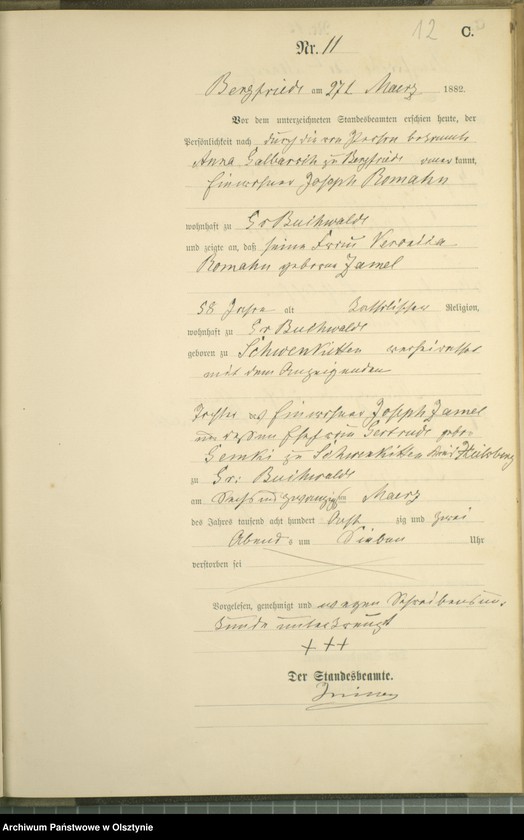 12 C.
Nr. 11
Bergfriede am 27t Maerz 1882.
Vor dem unterzeichneten Standesbeamten erschien heute, der
Persönlichkeit nach durch die von Person bekannte
Anna zu Bergfriede kannt,
Einwohner Joseph Romahn
wohnhaft zu Gr Buchwalde
und zeigte an, daß seine Frau Veronika
Romahn geborne Zamel
58 Jahre alt Katholischer Religion,
wohnhaft zu Gr Buchwalde
geboren zu Schwenkitten verheirathet
mit dem Anzeigenden
Tochter des Einwohner Joseph Zamel
und dessen Ehefrau Gertrude gebor
Gemki zu Schwenkitten Kreis Heilsberg
zu Gr: Buchwalde
am Sechs und zwanzigsten Maerz
des Jahres tausend acht hundert Acht zig und zwei
Abends um Sieben Uhr
verstorben sei
Vorgelesen, genehmigt und wegen Schreibensun-
kunde unterkreuzt
+++
Der Standesbeamte.
Archiwum Państwowe w Olsztynie